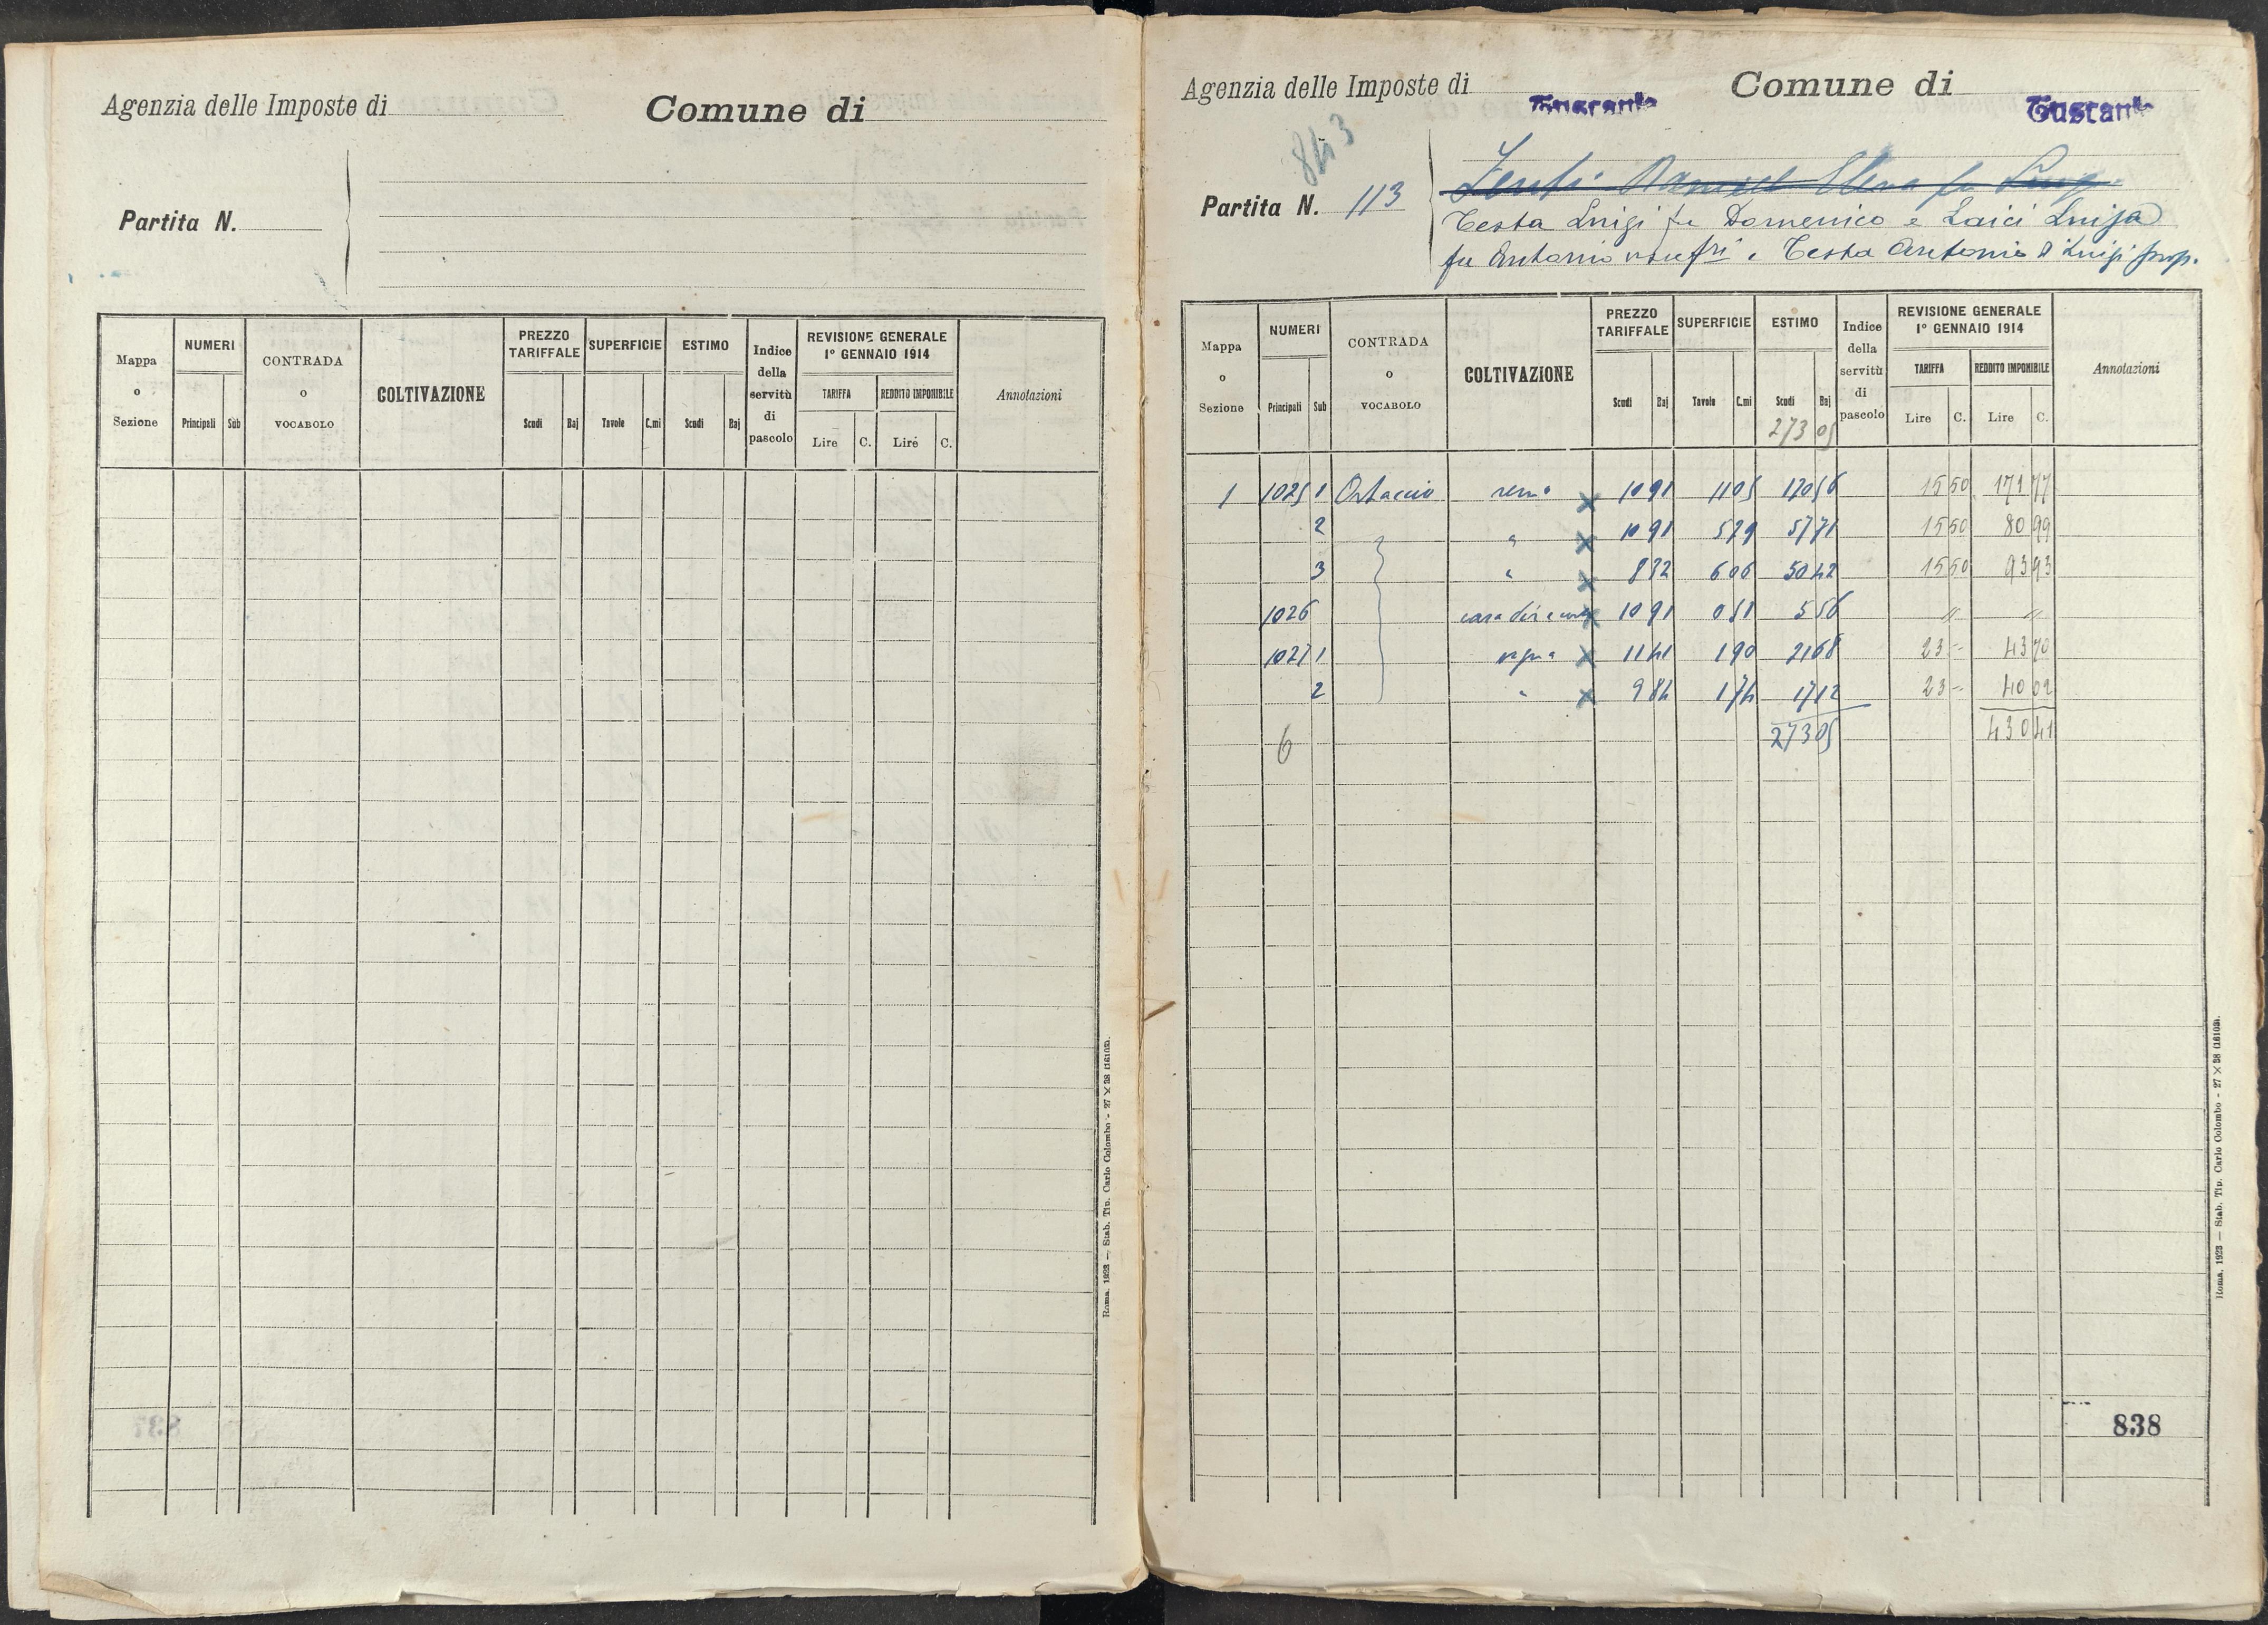 Agenzia delle Imposte di Comune di
Partita N.
Mappa o Sezione
NUMERI
Principali Sub
CONTRADA o VOCABOLO
COLTIVAZIONE
PREZZO TARIFFALE
Scudi Baj
SUPERFICIE
Tavole C.mi
ESTIMO
Scudi Baj
Indice della servitù di pascolo
REVISIONE GENERALE
1° GENNAIO 1914
TARIFFA REDDITO IMPONIBILE
Lire C. Lire C.
Annotazioni
Roma, 1923 — Stab. Tip. Carlo Colombo - 27 × 38 (16103).
Agenzia delle Imposte di Comune di
843
Partita N. 113
Testa Luigi fu Domenico e Laici Luisa
fu Antonio e Testa Antonio di Luigi prop.
Mappa o Sezione
NUMERI
Principali Sub
CONTRADA o VOCABOLO
COLTIVAZIONE
PREZZO TARIFFALE
Scudi Baj
SUPERFICIE
Tavole C.mi
ESTIMO
Scudi Baj
273 05
Indice della servitù di pascolo
REVISIONE GENERALE
1° GENNAIO 1914
TARIFFA REDDITO IMPONIBILE
Lire C. Lire C.
Annotazioni
1 1025 1 Ortaccio x 10 91 11 05 120 56 15 50 171 77
2 " x 10 91 5 29 57 71 15 50 80 99
3 " x 8 32 6 06 50 42 15 50 93 93
1026 x 10 91 0 51 5 56 " "
1027 1 vigna x 11 41 1 90 21 68 23 - 43 70
2 " x 9 84 1 74 17 12 23 - 40 02
6 273 05 430 41
838
Roma, 1923 — Stab. Tip. Carlo Colombo - 27 × 38 (16103).